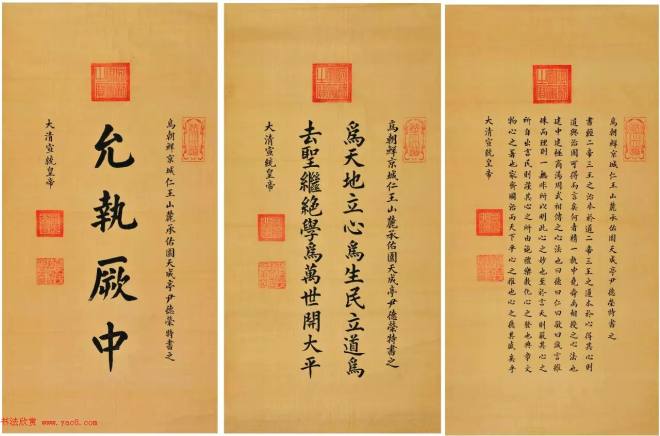 爲朝鮮京城仁王山麓承佑園天成亭尹德榮特書之
允執厥中
大清宣統皇帝
爲朝鮮京城仁王山麓承佑園天成亭尹德榮特書之
爲天地立心爲生民立道爲
去聖繼絕學爲萬世開大平
大清宣統皇帝
爲朝鮮京城仁王山麓承佑園天成亭尹德榮特書之
書經二帝三王之治本於道二帝三王之道本於心得其心則
道與治固可得而言矣何者精一執中堯舜禹相授之心法也
建中建極商湯周武相傳之心法也曰德曰仁曰敬曰誠言雖
殊而理則一無非所以明此心之妙也至於言天則嚴其心之
所自出言民則謹其心之所由施禮樂教化心之發也典章文
物心之著也家齊國治而天下平心之推也心之德其盛矣乎
大清宣統皇帝
书法欣赏 www.yac8.com